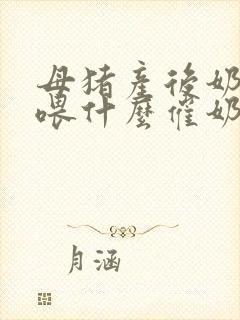 母猪產後奶
喂什麼催奶
月涵